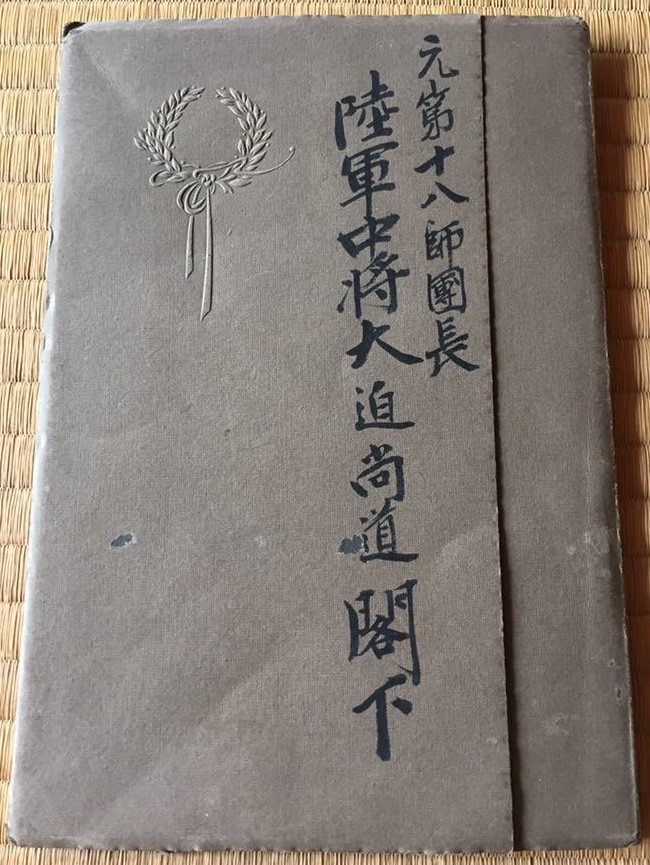 元第十八師團長
陸軍中将大迫尚道閣下